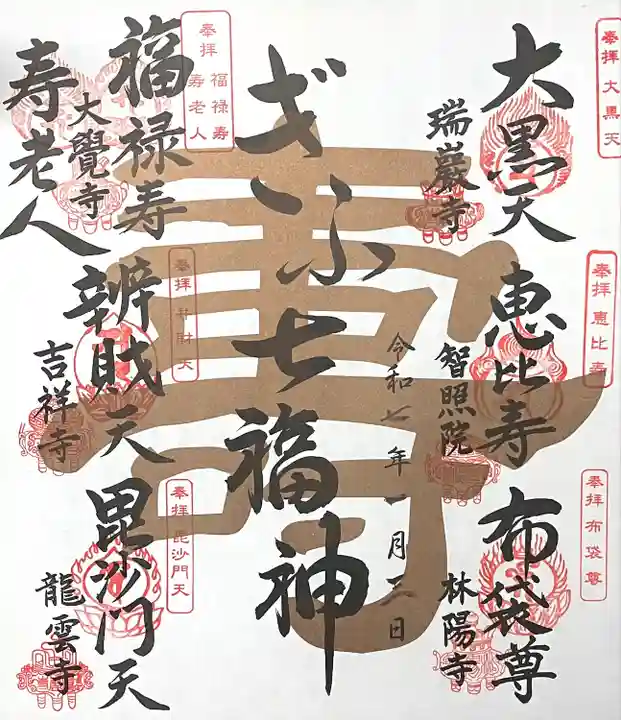 奉拝 大黒天
大黒天
瑞巖寺
奉拝 恵比寿
恵比寿
智照院
奉拝 布袋尊
布袋尊
林陽寺
令和七年一月二日
ぎふ七福神
寿
奉拝 福禄寿 寿老人
福禄寿
大覺寺
寿老人
奉拝 弁財天
辨財天
吉祥寺
奉拝 毘沙門天
毘沙門天
龍雲寺